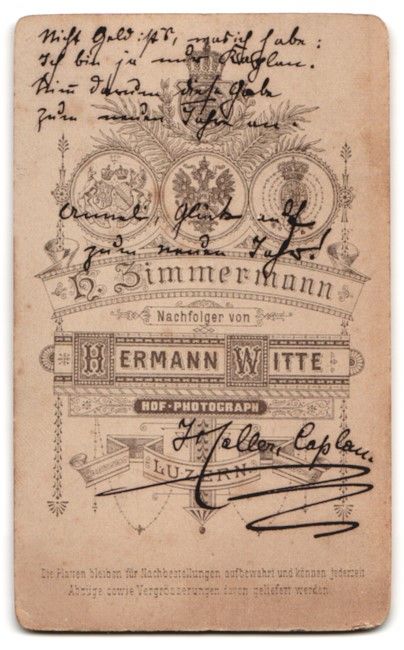 Nicht Geld ist's, was ich habe:
Ich bin ja nur Kaplan.
Nimm darum diese Gabe
zum neuen Jahre an.
Glück auf
zum neuen Jahr!
H. Zimmermann
Nachfolger von
HERMANN WITTE
HOF-PHOTOGRAPH
Caplan.
LUZERN
Die Platten bleiben für Nachbestellungen aufbewahrt und können jederzeit
Abzüge sowie Vergrösserungen davon geliefert werden.